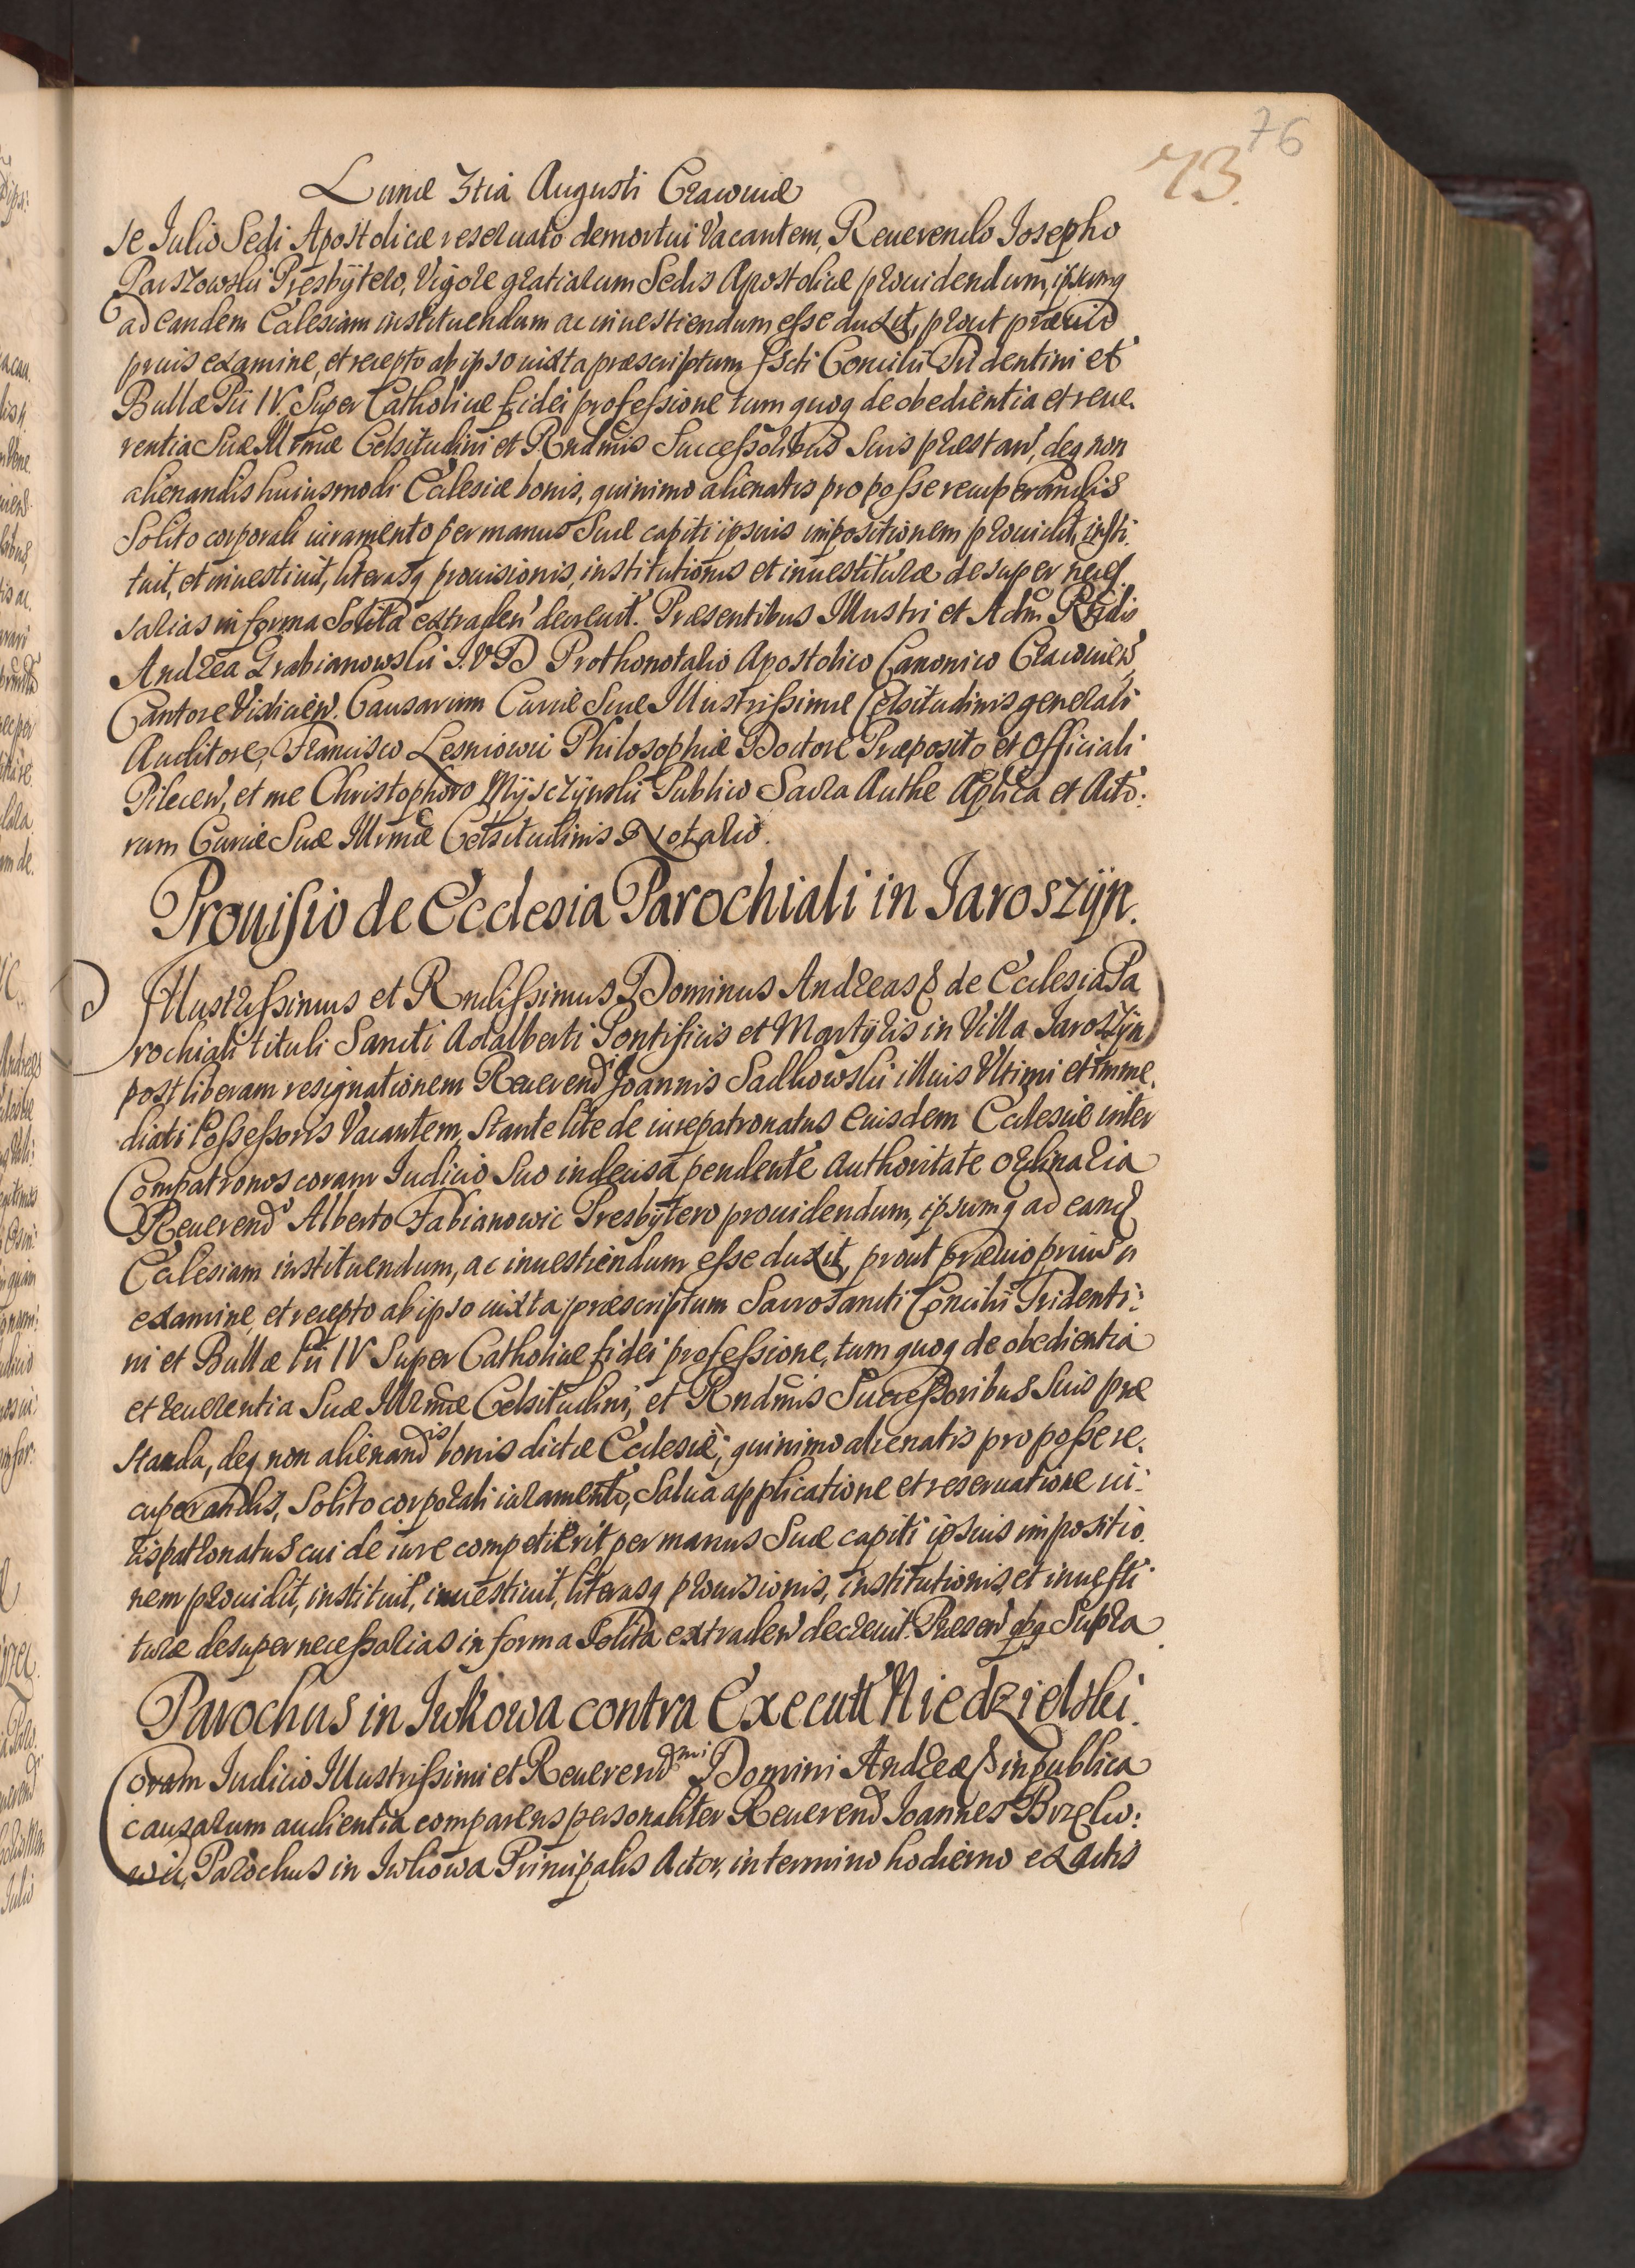 76
73.
Lunæ 3tia Augusti Cracoviæ
se Julio Sedi Apostolicæ reseruato demortui Vacantem, Reuerendo Josepho
Parszowski Presbytero, Vigore gratiarum Sedis Apostolicæ prouidendum, ipsumq
ad eandem Ecclesiam instituendum ac inuestiendum esse duxit, prout præuio
prius examine, et recepto ab ipso iuxta præscriptum Sscti Concilii Tridentini et
Bullæ Pii IV. Super Catholicæ fidei professione tum quoq de obedientia et reue.
rentia Suæ Illrmæ Celsitudini et Rndmis Successoribus Suis præstan, deq non
alienandis huiusmodi Ecclesiæ bonis, quinimo alienatis pro posse recuperandis
Solito corporali iuramento per manus Suæ capiti ipsius impositionem prouidit, insti.
tuit, et inuestiuit, literasq prouisionis, institutionis et inuestituræ desuper neces.
sarias in forma Solita extraden decreuit. Præsentibus Illustri et Adm Rndis
Andrea Grabianowski J.V.D Prothonotario Apostolico Canonico Cracouien,
Cantore Vislicien. Causarum Curiæ Suæ Illustrissimæ Celsitudinis generali
Auditore, Francisco Lesniowic Philosophiæ Doctore Præposito et Officiali
Pilecen, et me Christophoro Mysczynski Publico Sacra Authe Aplica et Acto:
rum Curiæ Suæ Illrmæ Celsitudinis Notario.
Prouisio de Ecclesia Parochiali in Jaroszyn.
Illustrissimus et Rndissimus Dominus Andreas & de Ecclesia Pa
rochiali tituli Sancti Adalberti Pontificis et Martyris in Villa Jaroszyn
post liberam resignationem Reuerend Joannis Sadkowski illius Vltimi et imme.
diati Possessoris Vacantem, Stante lite de iurepatronatus eiusdem Ecclesiæ inter
Compatronos coram Judicio Suo indecisa pendente authoritate ordinaria
Reuerendo Alberto Fabianowic Presbytero prouidendum, ipsumq ad eand
Ecclesiam instituendum, ac inuestiendum esse duxit, prout præuio prius
examine, et recepto ab ipso iuxta præscriptum Sacrosancti Concilii Tridenti:
ni et Bullæ Pii IV Super Catholicæ fidei professione, tum quoq de obedientia
et reuerentia Suæ Illrmæ Celsitudini, et Rndmis Successoribus Suis præ
standa, deq non alienandis bonis dictæ Ecclesiæ, quinimo alienatis pro posse re.
cuperandis, Solito corporali iuramento, Salua applicatione et reseruatione iu:
rispatronatus cui de iure competierit per manus Suæ capiti ipsius impositio.
nem prouidit, instituit, inuestiuit, literasq prouisionis, institutionis, et inuesti
turæ desuper necessarias in forma Solita extraden decreuit. Præsen qbq Supra
Parochus in Iwkowa contra Executt Niedzielski.
Coram Judicio Illustrissimi et Reuerendmi Domini Andreæ & in publica
causarum audientia comparens personaliter Reuerend Joannes Brzecho:
wic, Parochus in Iwkowa Principalis Actor, in termino hodierno ex actis